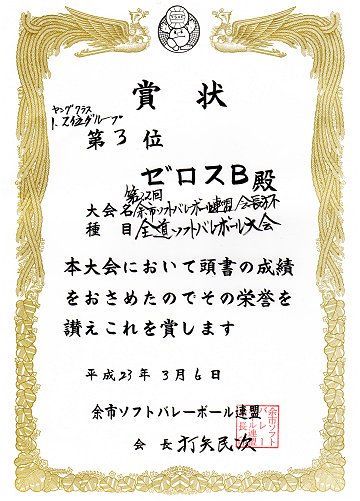 賞状
ヤングクラス
1、2位グループ
第3位
ゼロスB殿
第22回
大会名 余市ソフトバレーボール連盟会長杯
種目 全道ソフトバレーボール大会
本大会において頭書の成績
をおさめたのでその栄誉を
讃えこれを賞します
平成23年3月6日
余市ソフトバレーボール連盟
会長 打矢民次
余市ソフト
バレーボ
ール連盟